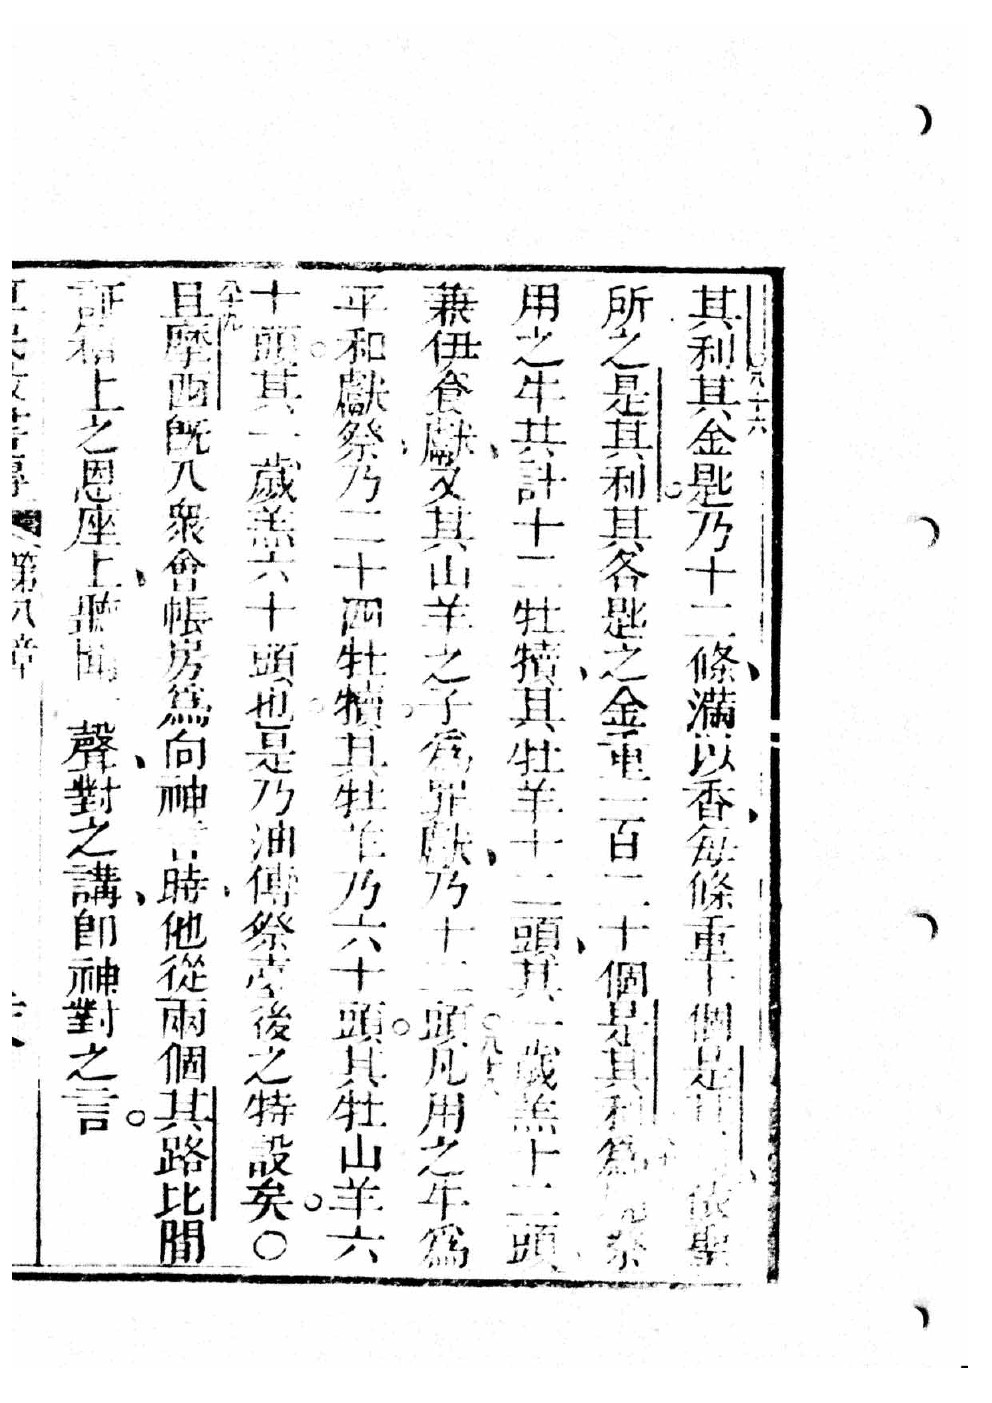 其利其金匙乃十二條滿以香每條重十個是依聖
所之是其利其各匙之金重一百二十個是其利為祭
用之牛共計十二牡犢其牡羊十二頭其一歲羔十二頭
兼伊食獻又其山羊之子為罪獻乃十二頭凡用之牛為
平和獻祭乃二十四牡犢其牡羊乃六十頭其牡山羊六
十頭其一歲羔六十頭也是乃油傅祭臺後之特設矣○
八十九
且摩西既入眾會帳房為向神言時他從兩個其路比間
証箱上之恩座上聽聞一聲對之講即神對之言
第八章